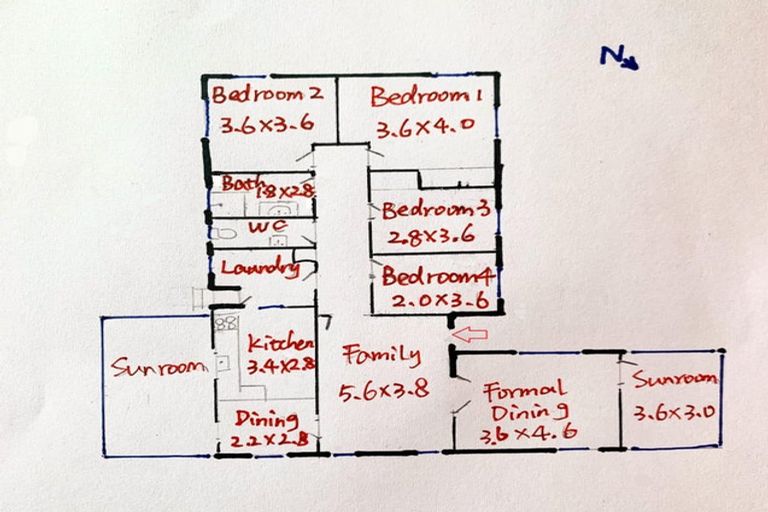 N
Bedroom 2
3.6 x 3.6
Bedroom 1
3.6 x 4.0
Bath
1.8 x 2.8
WC
Bedroom 3
2.8 x 3.6
Laundry
Bedroom 4
2.0 x 3.6
Sunroom
Kitchen
3.4 x 2.8
Family
5.6 x 3.8
Dining
2.2 x 2.8
Formal
Dining
3.6 x 4.6
Sunroom
3.6 x 3.0